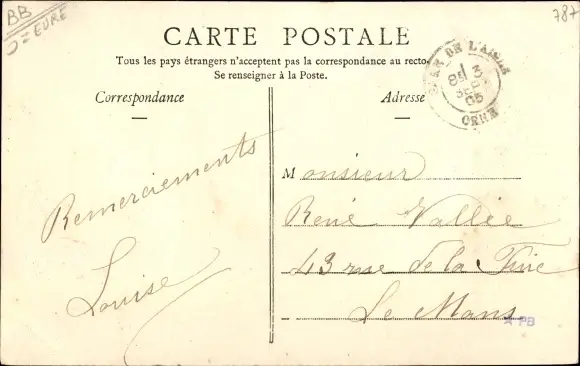 BB
J = EURE
787
CARTE POSTALE
Tous les pays étrangers n'acceptent pas la correspondance au recto.
Se renseigner à la Poste.
Correspondance
Adresse
GARE DE L'AIGLE
ORNE
05
Remerciements
Louise
Monsieur
René Vallée
43 rue de la
Le Mans
PB